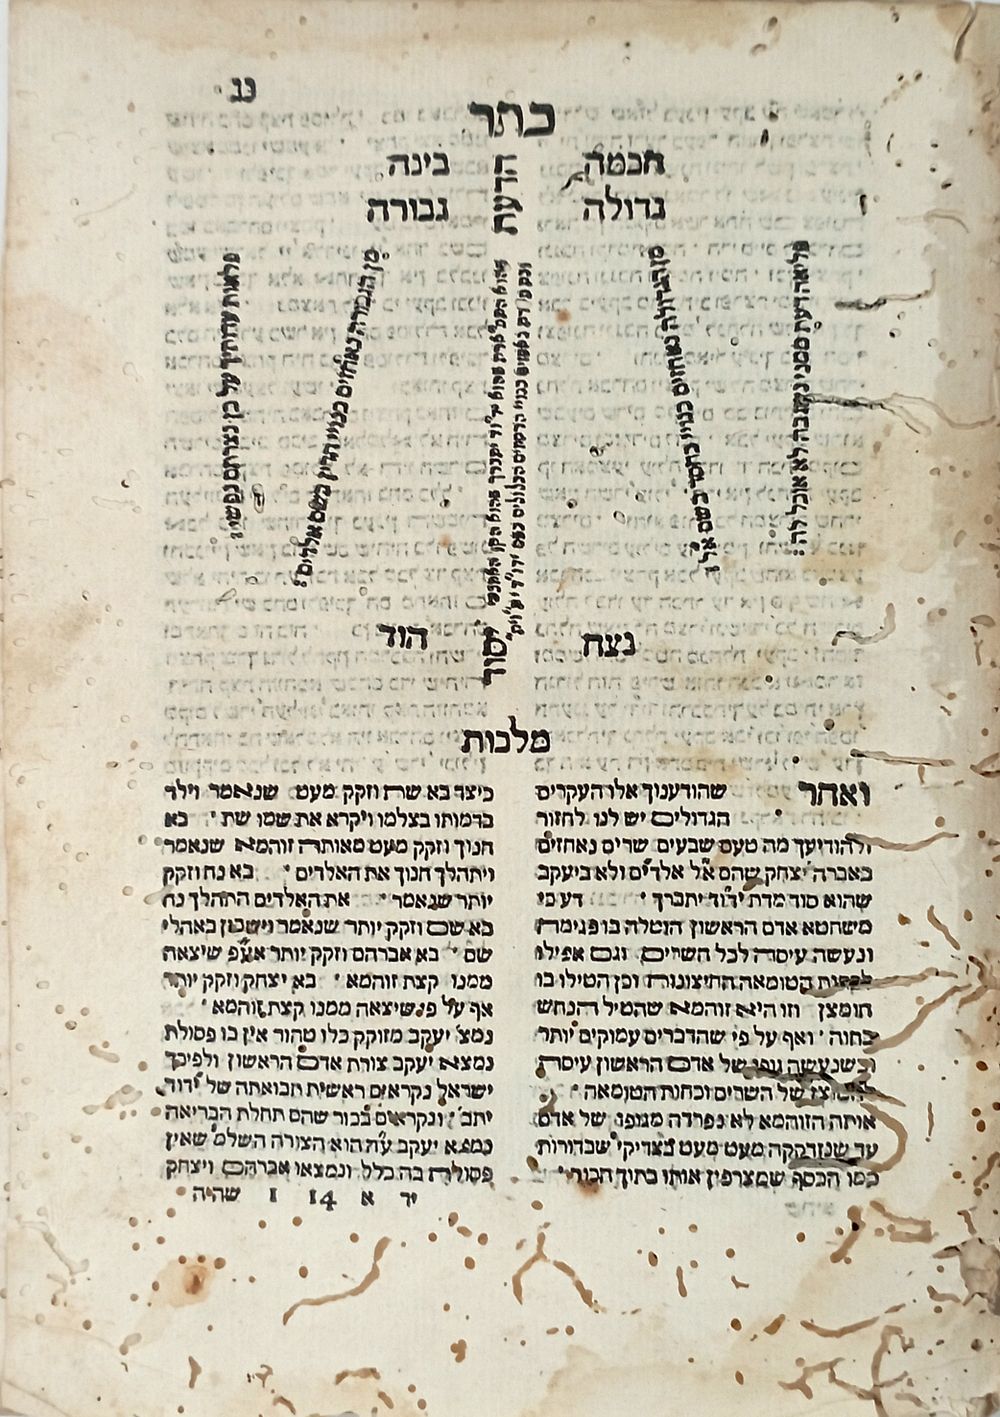 נג
כתר
חכמה הדעת בינה
גדולה גבורה
פליאה דעת ממני נשגבה לא אוכל לה:
מן הגדולה נאחזים כנויי החסד בשם אל:
מן הגבורה נאחזים כנויי הדין בשם אלדים:
פלאות עדותיך על כן נצרתם נפשי:
נצח יסוד הוד
מלכות
ואחר שהודענוך אלו העקרים
הגדולים יש לנו לחזור
ולהודיעך מה טעם שבעים שרים נאחזים
באברה' יצחק שהם אל אלדים ולא ביעקב
שהוא סוד מדת ידוד יתברך ׳ דע כי
משחטא אדם הראשון הוטלה בו פגימה
ונעשה עיסה לכל השרים וגם אפילו
לכחות הטומאה החיצונות וכן הטילו בו
חומצן וזו היא זוהמא שהטיל הנחש
בחוה ׳ ואף על פי שהדברים עמוקים יותר
וכשנעשה גופו של אדם הראשון עיסה
של השרים וכחות הטומאה ׳
אותה הזוהמא לא נפרדה מגופו של אדם
עד שנזדקקה מעט מעט בצדיקי' שבדורות
כמו הכסף שמצרפין אותו בתוך הכור ׳
כיצד בא שת וזקק מעט שנאמר וילד
בדמותו בצלמו ויקרא את שמו שת ׳ בא
חנוך וזקק מעט מאותה זוהמא שנאמר
ויתהלך חנוך את האלדים ׳ בא נח וזקק
יותר שנאמר ׳ את האלדים התהלך נח
בא שם וזקק יותר שנאמר וישכון באהלי
שם ׳ בא אברהם וזקק יותר אע"פ שיצאה
ממנו קצת זוהמא ׳ בא יצחק וזקק יותר
אף על פי שיצאה ממנו קצת זוהמא ׳
נמצ' יעקב מזוקק כלו טהור אין בו פסולת
נמצא יעקב צורת אדם הראשון ולפיכך
ישראל נקראים ראשית תבואתה של ידוד
יתב' ׳ ונקראים בכור שהם תחלת הבריאה
נמצא יעקב ע"ה הוא הצורה השלם' שאין
פסולת בה כלל ונמצאו אברהם ויצחק
יד א 14 1 שהיה